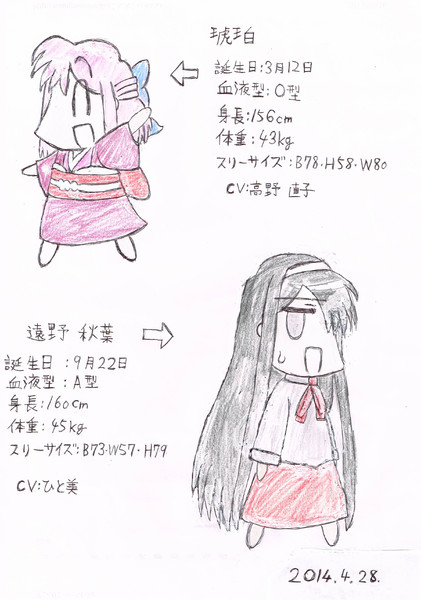 琥珀
誕生日:3月12日
血液型:O型
身長:156cm
体重:43kg
スリーサイズ:B78・H58・W80
CV:高野 直子
遠野 秋葉
誕生日:9月22日
血液型:A型
身長:160cm
体重:45kg
スリーサイズ:B73・W57・H79
CV:ひと美
2014.4.28.